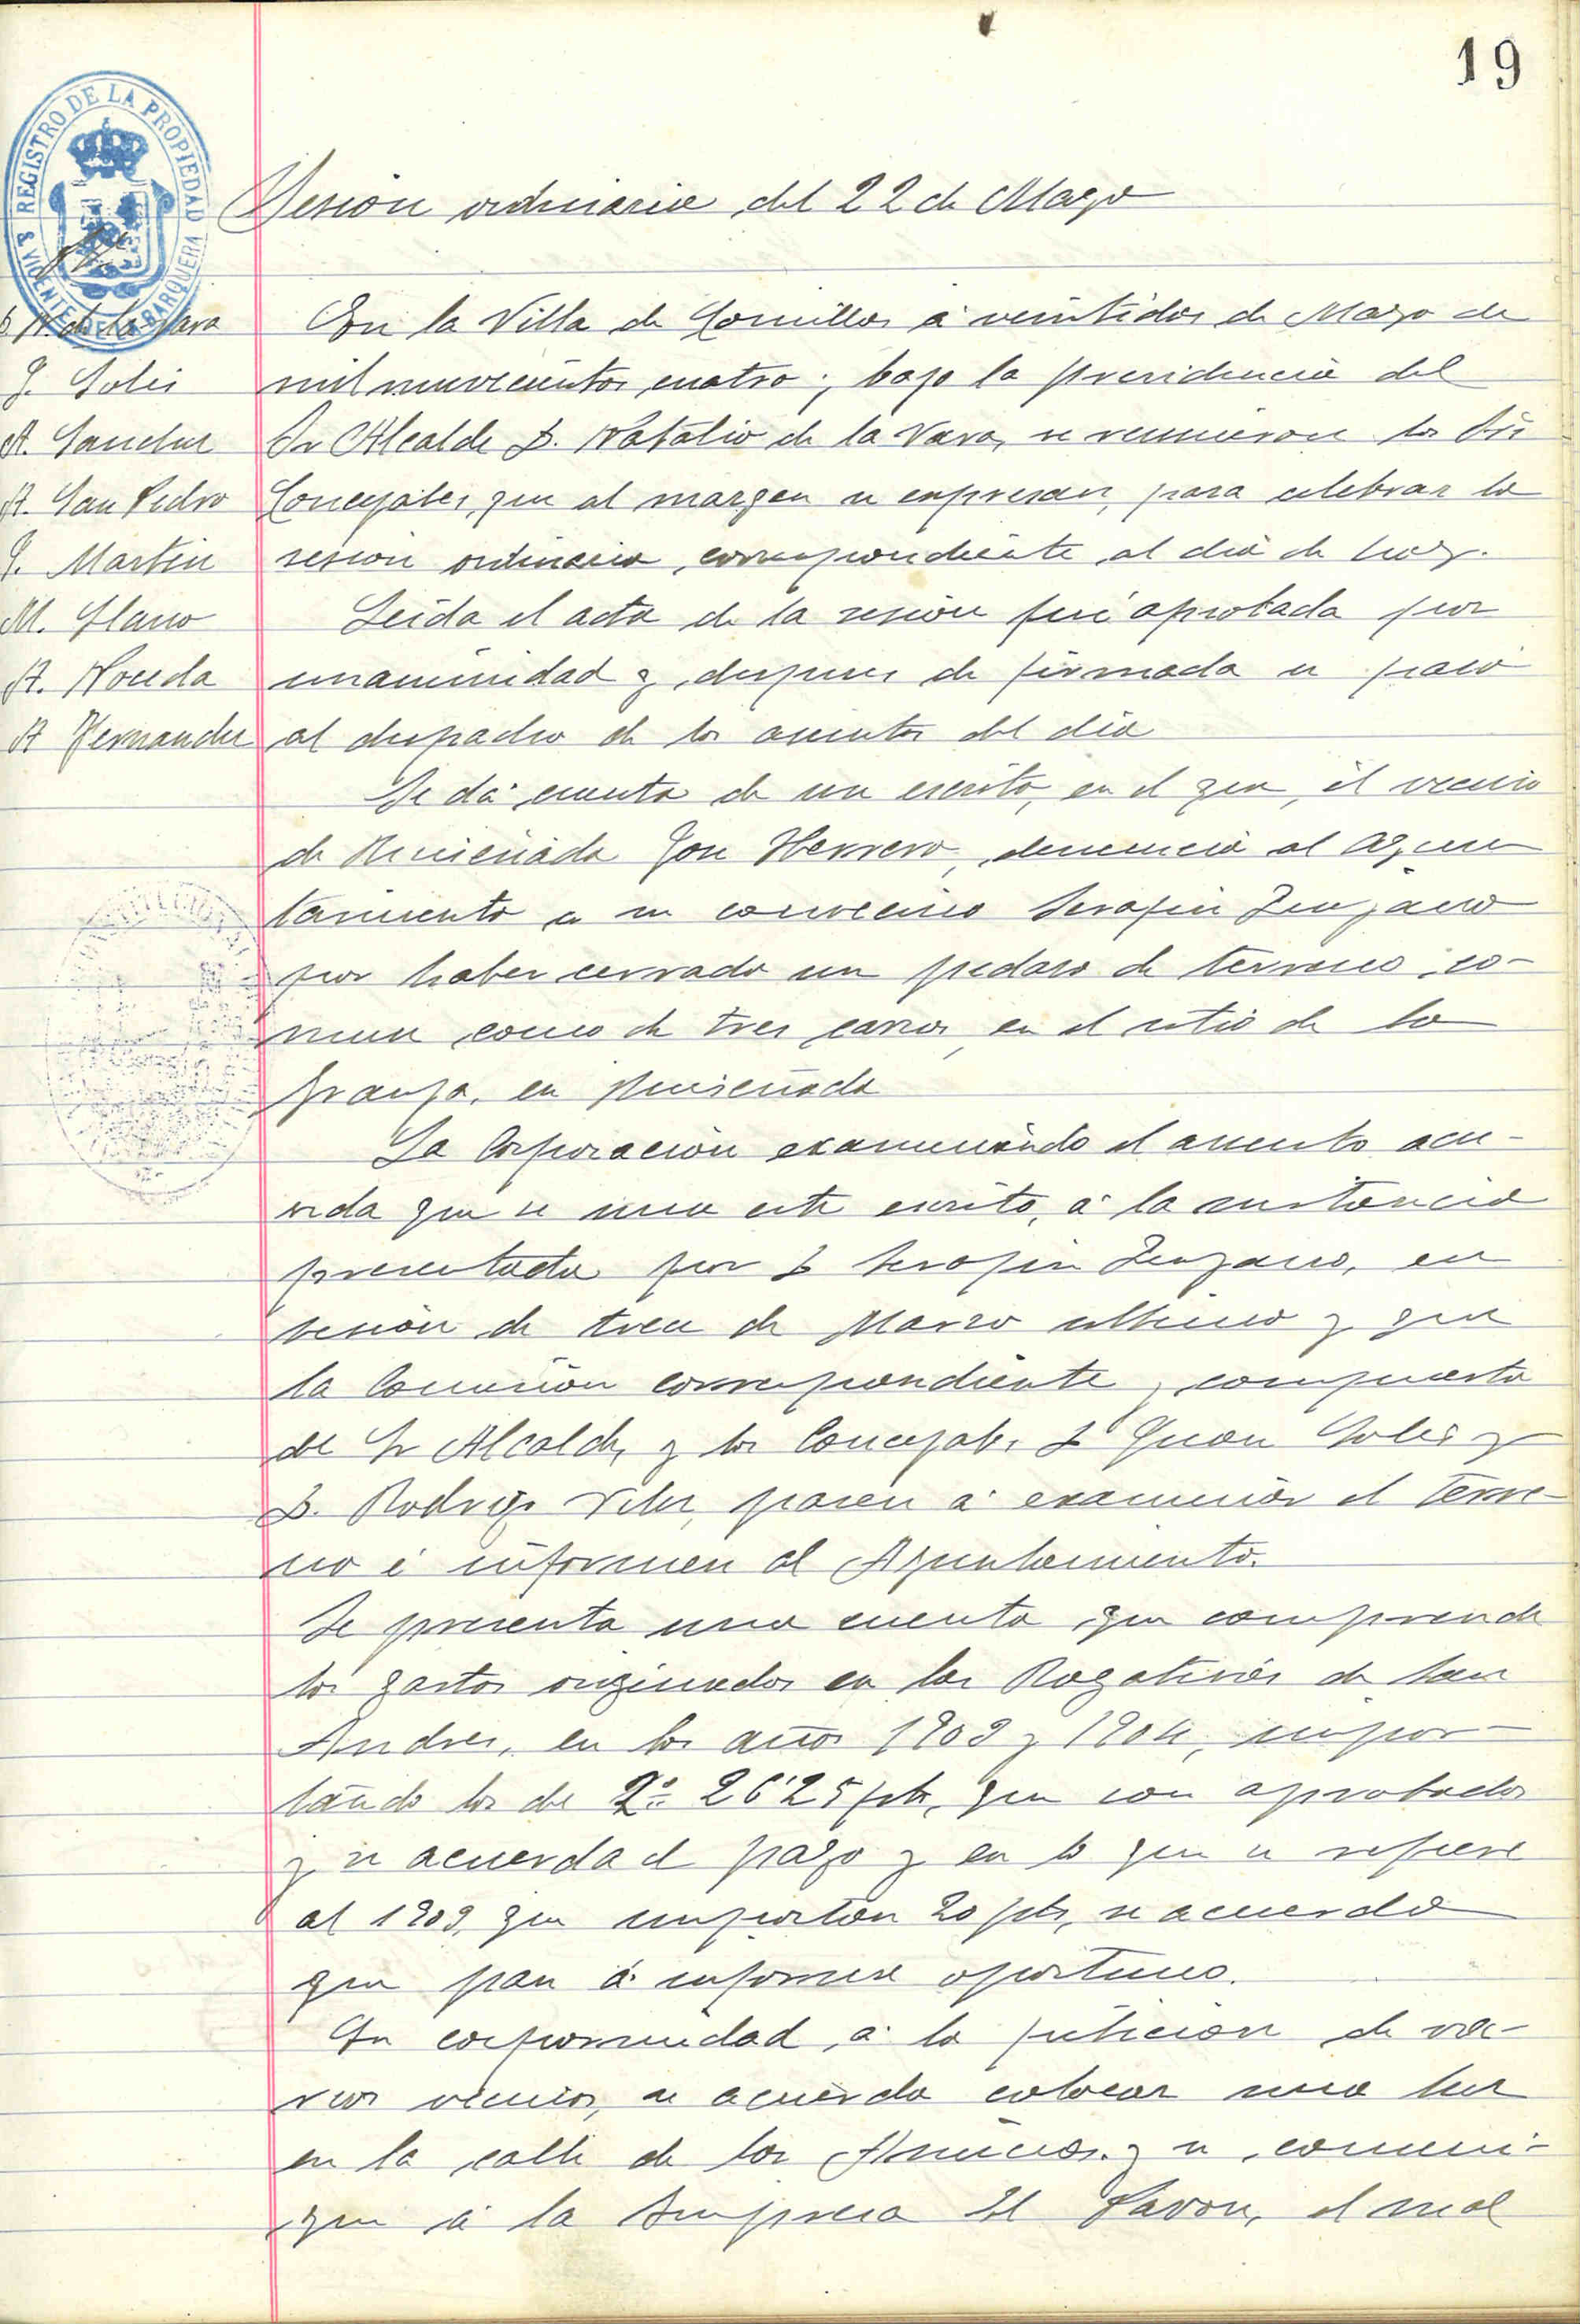 19
REGISTRO DE LA PROPIEDAD
S. VICENTE DE LA BARQUERA
Sesión ordinaria del 22 de Mayo
D. N. de la Vara
J. Solis
A. Sanchez
A. San Pedro
J. Martin
M. Llano
A. Noceda
A Fernandez
En la Villa de Comillas á veintidos de Mayo de
mil novecientos cuatro; bajo la presidencia del
Sr Alcalde D. Natalio de la Vara, se reunieron los Srs
Concejales, que al margen se expresan, para celebrar la
sesion ordinaria, correspondiente al dia de hoy.
Leida el acta de la sesion fué aprobada por
unanimidad y, despues de firmada se pasó
al despacho de los asuntos del dia
Se dá cuenta de un escrito, en el que, el vecino
de Ruiseñada José Herrero, denuncia al Ayun
tamiento a su convecino Serafin
por haber cerrado un pedazo de terreno co-
mun como de tres carros, en el sitio de la
Granja, en Ruiseñada
La Corporación examinando el asunto acu-
erda que se una este escrito, á la instancia
presentada por D Serafin en
sesión de trece de Marzo ultimo y que
la Comision correspondiente, compuesta
del Sr Alcalde, y los Concejales Dn Juan Solis y
D. Rodrigo Velez, pasen á examinar el terre-
no é informen al Ayuntamiento.
Se presenta una cuenta que comprende
los gastos originados en las Rogativas de San
Andres, en los años 1903 y 1904, impor-
tando los de 2º 26'25 pts, que son aprobados
y se acuerda el pago y en lo que se refiere
al 1903, que importan 20 pts, se acuerda
que pase á informe oportuno.
En conformidad, á la peticion de va-
rios vecinos, se acuerda colocar una luz
en la calle de los y se comuni-
que á la Empresa El Pavon, el mal